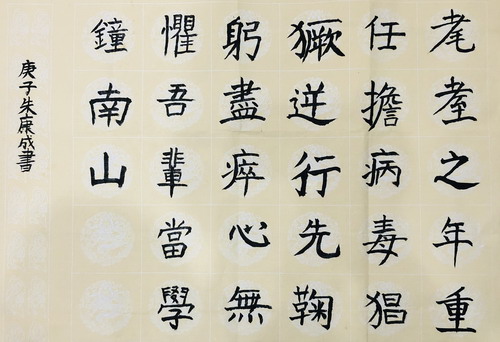 耄耋之年重
任擔病毒猖
獗逆行先鞠
躬盡瘁心無
懼吾輩當學
鐘南山
庚子朱康成書